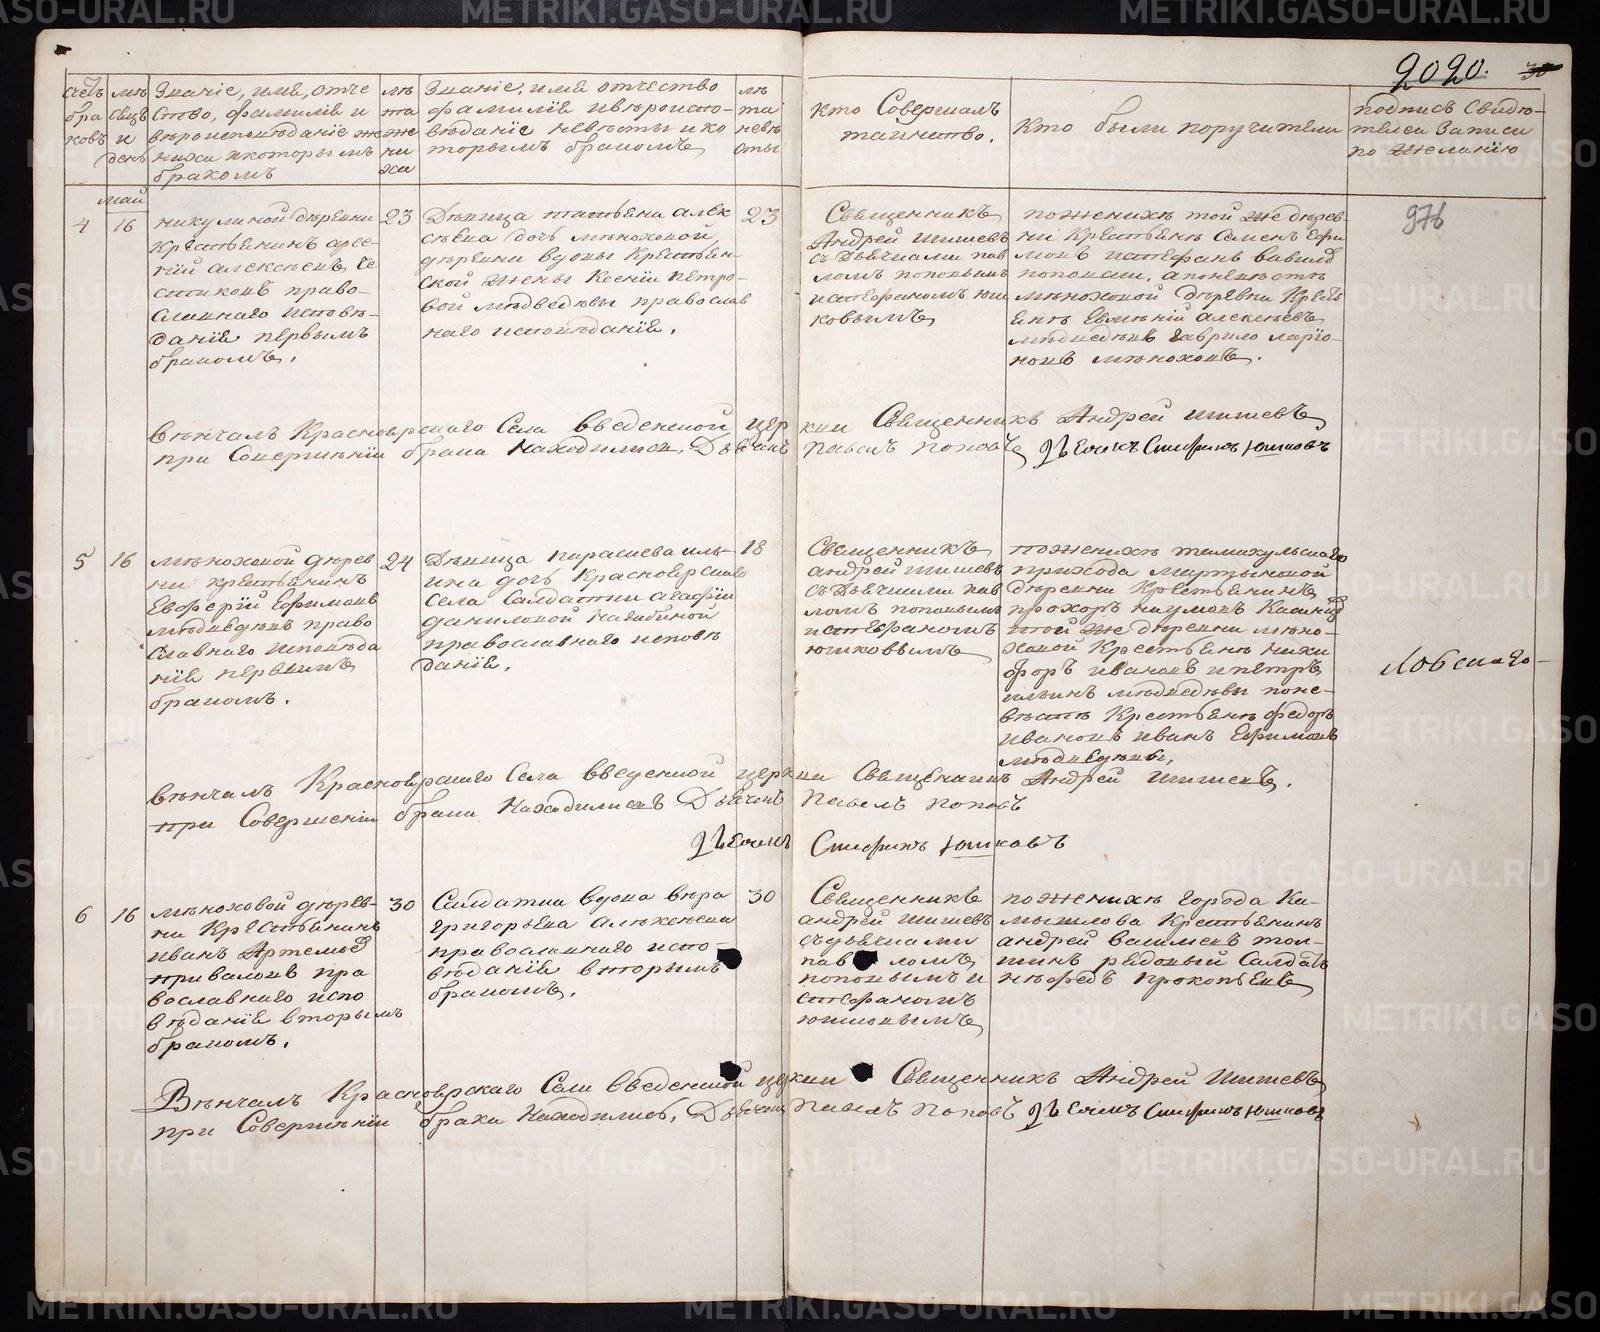 2020.
счетъ браковъ
мѣсяцъ и день
Званіе, имя, отче
ство, фамилія и
вѣроисповѣданіе же
ниха и которымъ
бракомъ
лѣта жениха
Званіе, имя отчество
фамилія и вѣроиспо-
вѣданіе невѣсты и ко
торымъ бракомъ
лѣта невѣсты
кто Совершалъ
таинство.
Кто были поручители
подпись Свидѣ-
телей Записи
по желанію
май
4
16
никулиной дѣревни
Крестьянинъ арсе-
ній алексѣевъ
право-
славнаго исповѣ-
данія первымъ
бракомъ.
23
Дѣвица татьяна алек
сѣева дочь мѣноховой
дѣревни вдовы Крестьян-
ской жены Ксеніи петро-
вой мѣдведевы православ
наго исповѣданія.
23
Священникъ
Андрей Шишевъ
съ Дьячками пав
ломъ поповымъ
и стефаномъ юш
ковымъ
по женихѣ той же дѣрев-
ни Крестьянѣ Семенъ Ефи
мовъ и стефанъ вавилов
поповы. а по невѣстѣ
мѣноховой дѣревни Кресть
янѣ Евгѣній алексѣевъ
мѣдведевъ Гаврило ларіо-
новъ мѣноховъ.
976
Вѣнчалъ Красноярскаго Села Введенской церкви Священникъ Андрей Шишевъ
при Совершеніи брака Находились, Дьячекъ Павелъ Поповъ Дьячекъ Стефанъ Юшковъ
5
16
мѣноховой дѣрев
ни крестьянинъ
Евферій Ефимовъ
мѣдведевъ право
славнаго исповѣда
нія первымъ
бракомъ.
24
Дѣвица парасковья иль-
ина дочь Красноярскаго
села Салдатки агафіи
даниловой нагибиной
православнаго исповѣ
данія.
18
Священникъ
андрей шишевъ
съ Дьячками пав
ломъ поповымъ
и стефаномъ
юшковымъ
по женихѣ темикульскаго
прихода мартыновой
дѣревни Крестьянинъ
прохоръ наумовъ
той же дѣревни мѣно-
ховой Крестьянѣ ники
форъ ивановъ и петръ
ильинъ мѣдведевы по не-
вѣстѣ Крестьянѣ федоръ
ивановъ иванъ Ефимовъ
мѣдведевы,
Лобскаго
вѣнчалъ Красноярскаго Села Введенской церкви Священникъ Андрей Шишевъ.
при Совершеніи брака Находились Дьячекъ Павелъ Поповъ
Дьячекъ Стефанъ Юшковъ
6
16
мѣноховой дѣрев-
ни Крестьянинъ
иванъ Артемьев
приваловъ пра
вославнаго испо
вѣданія вторымъ
бракомъ.
30
Салдатка вдова вѣра
григорьева алексѣева
православнаго испо-
вѣданія вторымъ
бракомъ.
30
Священникъ
андрей шишевъ
съ дьячками
павломъ
поповымъ и
стефаномъ
юшковымъ
по женихѣ города Ка-
мышлова Крестьянинъ
андрей васильевъ
рядовый Салдатъ
нѣфедъ прокопьевъ
Вѣнчалъ Красноярскаго Села Введенской церкви Священникъ Андрей Шишевъ
при Совершеніи брака Находились, Дьячекъ Павелъ Поповъ Дьячекъ Стефанъ Юшковъ
METRIKI.GASO-URAL.RU